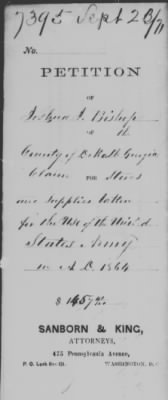 7395 Sept 23/71
No.
PETITION
OF
Joshua J. Bishop
of the
County of DeKalb Georgia
Claim for Stores
and supplies taken
for the Use of the United
States Army
in A D. 1864
$ 1457
SANBORN & KING,
ATTORNEYS,
475 Pennsylvania Avenue,
P. O. Lock Box WASHINGTON, D. C.